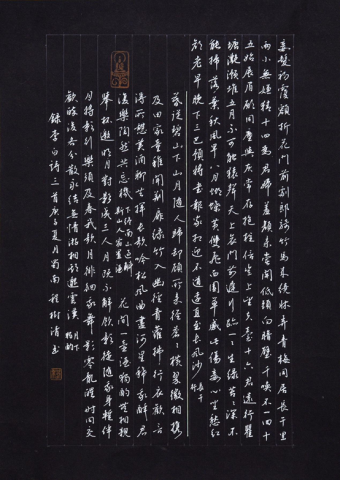 妾髮初覆額折花門前劇郎騎竹馬來繞牀弄青梅同居長干里
兩小無嫌猜十四為君婦羞顏未嘗開低頭向暗壁千喚不一回十
五始展眉願同塵與灰常存抱柱信豈上望夫臺十六君遠行瞿
塘灩澦堆五月不可觸猿聲天上哀門前遲行跡一一生綠苔苔深不
能掃落葉秋風早八月蝴蝶黃雙飛西園草感此傷妾心坐愁紅
顏老早晚下三巴預將書報家相迎不道遠直至長風沙 長干行
暮從碧山下山月隨人歸卻顧所來徑蒼蒼橫翠微相攜
及田家童稚開荊扉綠竹入幽徑青蘿拂行衣歡言
得所憩美酒聊共揮長歌吟松風曲盡河星稀我醉君
復樂陶然共忘機 下終南山過斛斯山人宿置酒 花間一壺酒獨酌無相親
舉杯邀明月對影成三人月既不解飲影徒隨我身暫伴
月將影行樂須及春我歌月徘徊我舞影零亂醒時同交
歡醉後各分散永結無情游相期邈雲漢 月下獨酌
錄李白詩三首庚夏月蜀南程樹清書